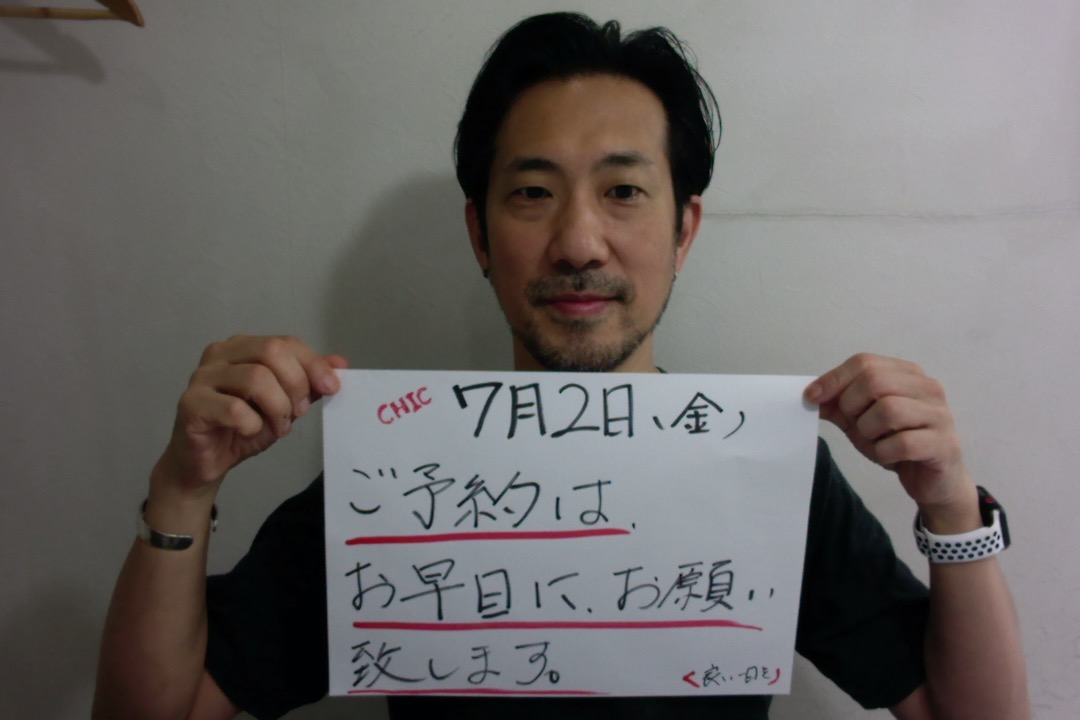 CHIC 7月2日(金)
ご予約は、
お早目に、お願い
致します。
<良い一日を>